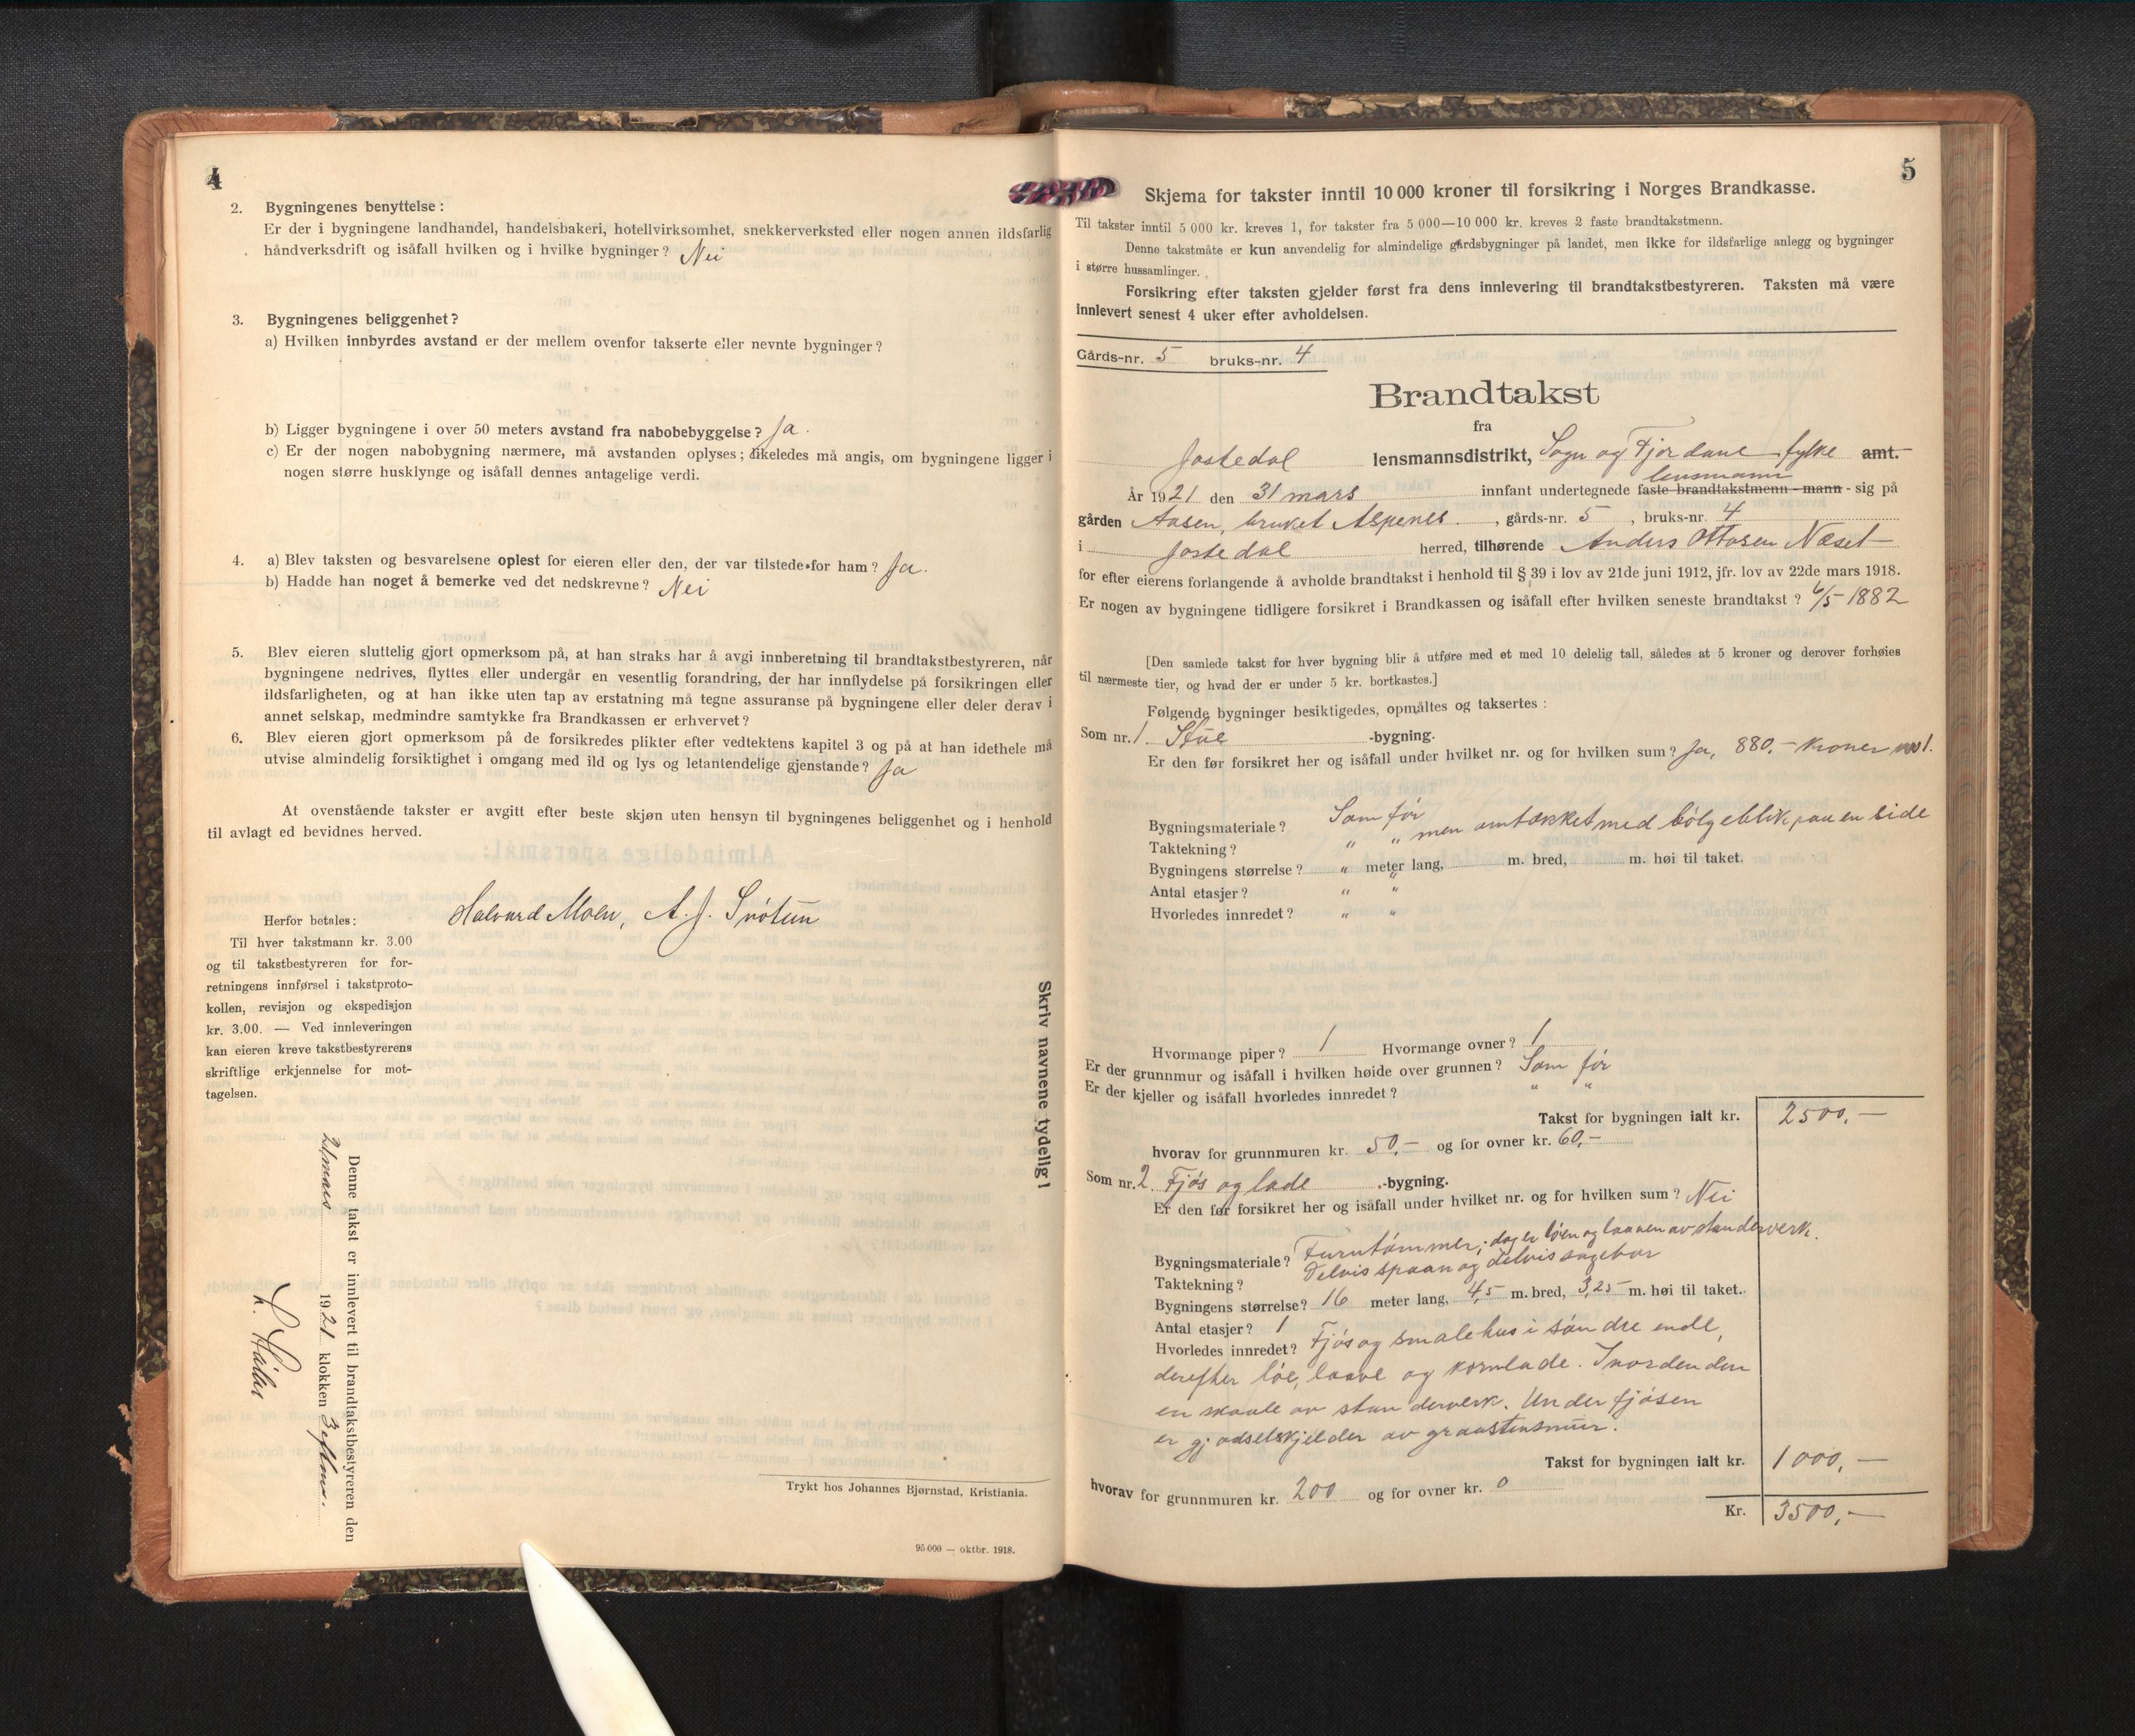 4
2. Bygningenes benyttelse:
Er der i bygningene landhandel, handelsbakeri, hotellvirksomhet, snekkerverksted eller nogen annen ildsfarlig
håndverksdrift og isåfall hvilken og i hvilke bygninger? Nei
3. Bygningenes beliggenhet?
a) Hvilken innbyrdes avstand er der mellem ovenfor takserte eller nevnte bygninger?
b) Ligger bygningene i over 50 meters avstand fra nabobebyggelse? Ja.
c) Er der nogen nabobygning nærmere, må avstanden oplyses; likeledes må angis, om bygningene ligger i
nogen større husklynge og isåfall dennes antagelige verdi.
4. a) Blev taksten og besvarelsene oplest for eieren eller den, der var tilstede for ham? Ja.
b) Hadde han noget å bemerke ved det nedskrevne? Nei
5. Blev eieren sluttelig gjort opmerksom på, at han straks har å avgi innberetning til brandtakstbestyreren, når
bygningene nedrives, flyttes eller undergår en vesentlig forandring, der har innflydelse på forsikringen eller
ildsfarligheten, og at han ikke uten tap av erstatning må tegne assuranse på bygningene eller deler derav i
annet selskap, medmindre samtykke fra Brandkassen er erhvervet?
6. Blev eieren gjort opmerksom på de forsikredes plikter efter vedtektens kapitel 3 og på at han idethele må
utvise almindelig forsiktighet i omgang med ild og lys og letantendelige gjenstande? Ja
At ovenstående takster er avgitt efter beste skjøn uten hensyn til bygningenes beliggenhet og i henhold
til avlagt ed bevidnes herved.
Halvard Moen, A. J. Snøtun
Herfor betales:
Til hver takstmann kr. 3.00
og til takstbestyreren for for-
retningens innførsel i takstproto-
kollen, revisjon og ekspedisjon
kr. 3.00. — Ved innleveringen
kan eieren kreve takstbestyrerens
skriftlige erkjennelse for mot-
tagelsen.
Skriv navnene tydelig!
Denne takst er innlevert til brandtakstbestyreren den
21 mars 1921 klokken 3 eftm.
Trykt hos Johannes Bjørnstad, Kristiania.
95 000 — oktbr. 1918.
5
Skjema for takster inntil 10 000 kroner til forsikring i Norges Brandkasse.
Til takster inntil 5 000 kr. kreves 1, for takster fra 5 000—10 000 kr. kreves 2 faste brandtakstmenn.
Denne takstmåte er kun anvendelig for almindelige gårdsbygninger på landet, men ikke for ildsfarlige anlegg og bygninger
i større hussamlinger.
Forsikring efter taksten gjelder først fra dens innlevering til brandtakstbestyreren. Taksten må være
innlevert senest 4 uker efter avholdelsen.
Gårds-nr. 5 bruks-nr. 4
Brandtakst
fra
Jostedal lensmannsdistrikt, Sogn og Fjordane fylke amt.
lensmann
År 1921 den 31 mars innfant undertegnede faste brandtakstmenn - mann - sig på
gården Aasen, bruket Aspenes, gårds-nr. 5, bruks-nr. 4
i Jostedal herred, tilhørende Anders Ottosen Næset
for efter eierens forlangende å avholde brandtakst i henhold til § 39 i lov av 21de juni 1912, jfr. lov av 22de mars 1918.
Er nogen av bygningene tidligere forsikret i Brandkassen og isåfall efter hvilken seneste brandtakst? 6/5 1882
[Den samlede takst for hver bygning blir å utføre med et med 10 delelig tall, således at 5 kroner og derover forhøies
til nærmeste tier, og hvad der er under 5 kr. bortkastes.]
Følgende bygninger besiktigedes, opmåltes og taksertes:
Som nr. 1. Stue -bygning.
Er den før forsikret her og isåfall under hvilket nr. og for hvilken sum? Ja, 880,- kroner no 1.
Bygningsmateriale? Som før
Taktekning? " " men omtækket med bølgeblik paa en side
Bygningens størrelse? " meter lang, " m. bred, m. høi til taket.
Antal etasjer? " "
Hvorledes innredet? " "
Hvormange piper? 1 Hvormange ovner? 1
Er der grunnmur og isåfall i hvilken høide over grunnen? Som før
Er der kjeller og isåfall hvorledes innredet? " "
Takst for bygningen ialt kr. 2500,—
hvorav for grunnmuren kr. 50,— og for ovner kr. 60,—
Som nr. 2. Fjøs og lade -bygning.
Er den før forsikret her og isåfall under hvilket nr. og for hvilken sum? Nei
Bygningsmateriale? Furutømmer; dog er løen og laaven av standerverk.
Taktekning? Delvis spaan og delvis
Bygningens størrelse? 16 meter lang, 4,5 m. bred, 3,25 m. høi til taket.
Antal etasjer? 1
Hvorledes innredet? Fjøs og smalehus i søndre ende,
derefter løe, laave og kornlade. I norden den
en skaale av standerverk. Under fjøsen
er gjødselskjelder av graastensmur.
Takst for bygningen ialt kr. 1000,—
hvorav for grunnmuren kr. 200 og for ovner kr. 0
Kr. 3500,—